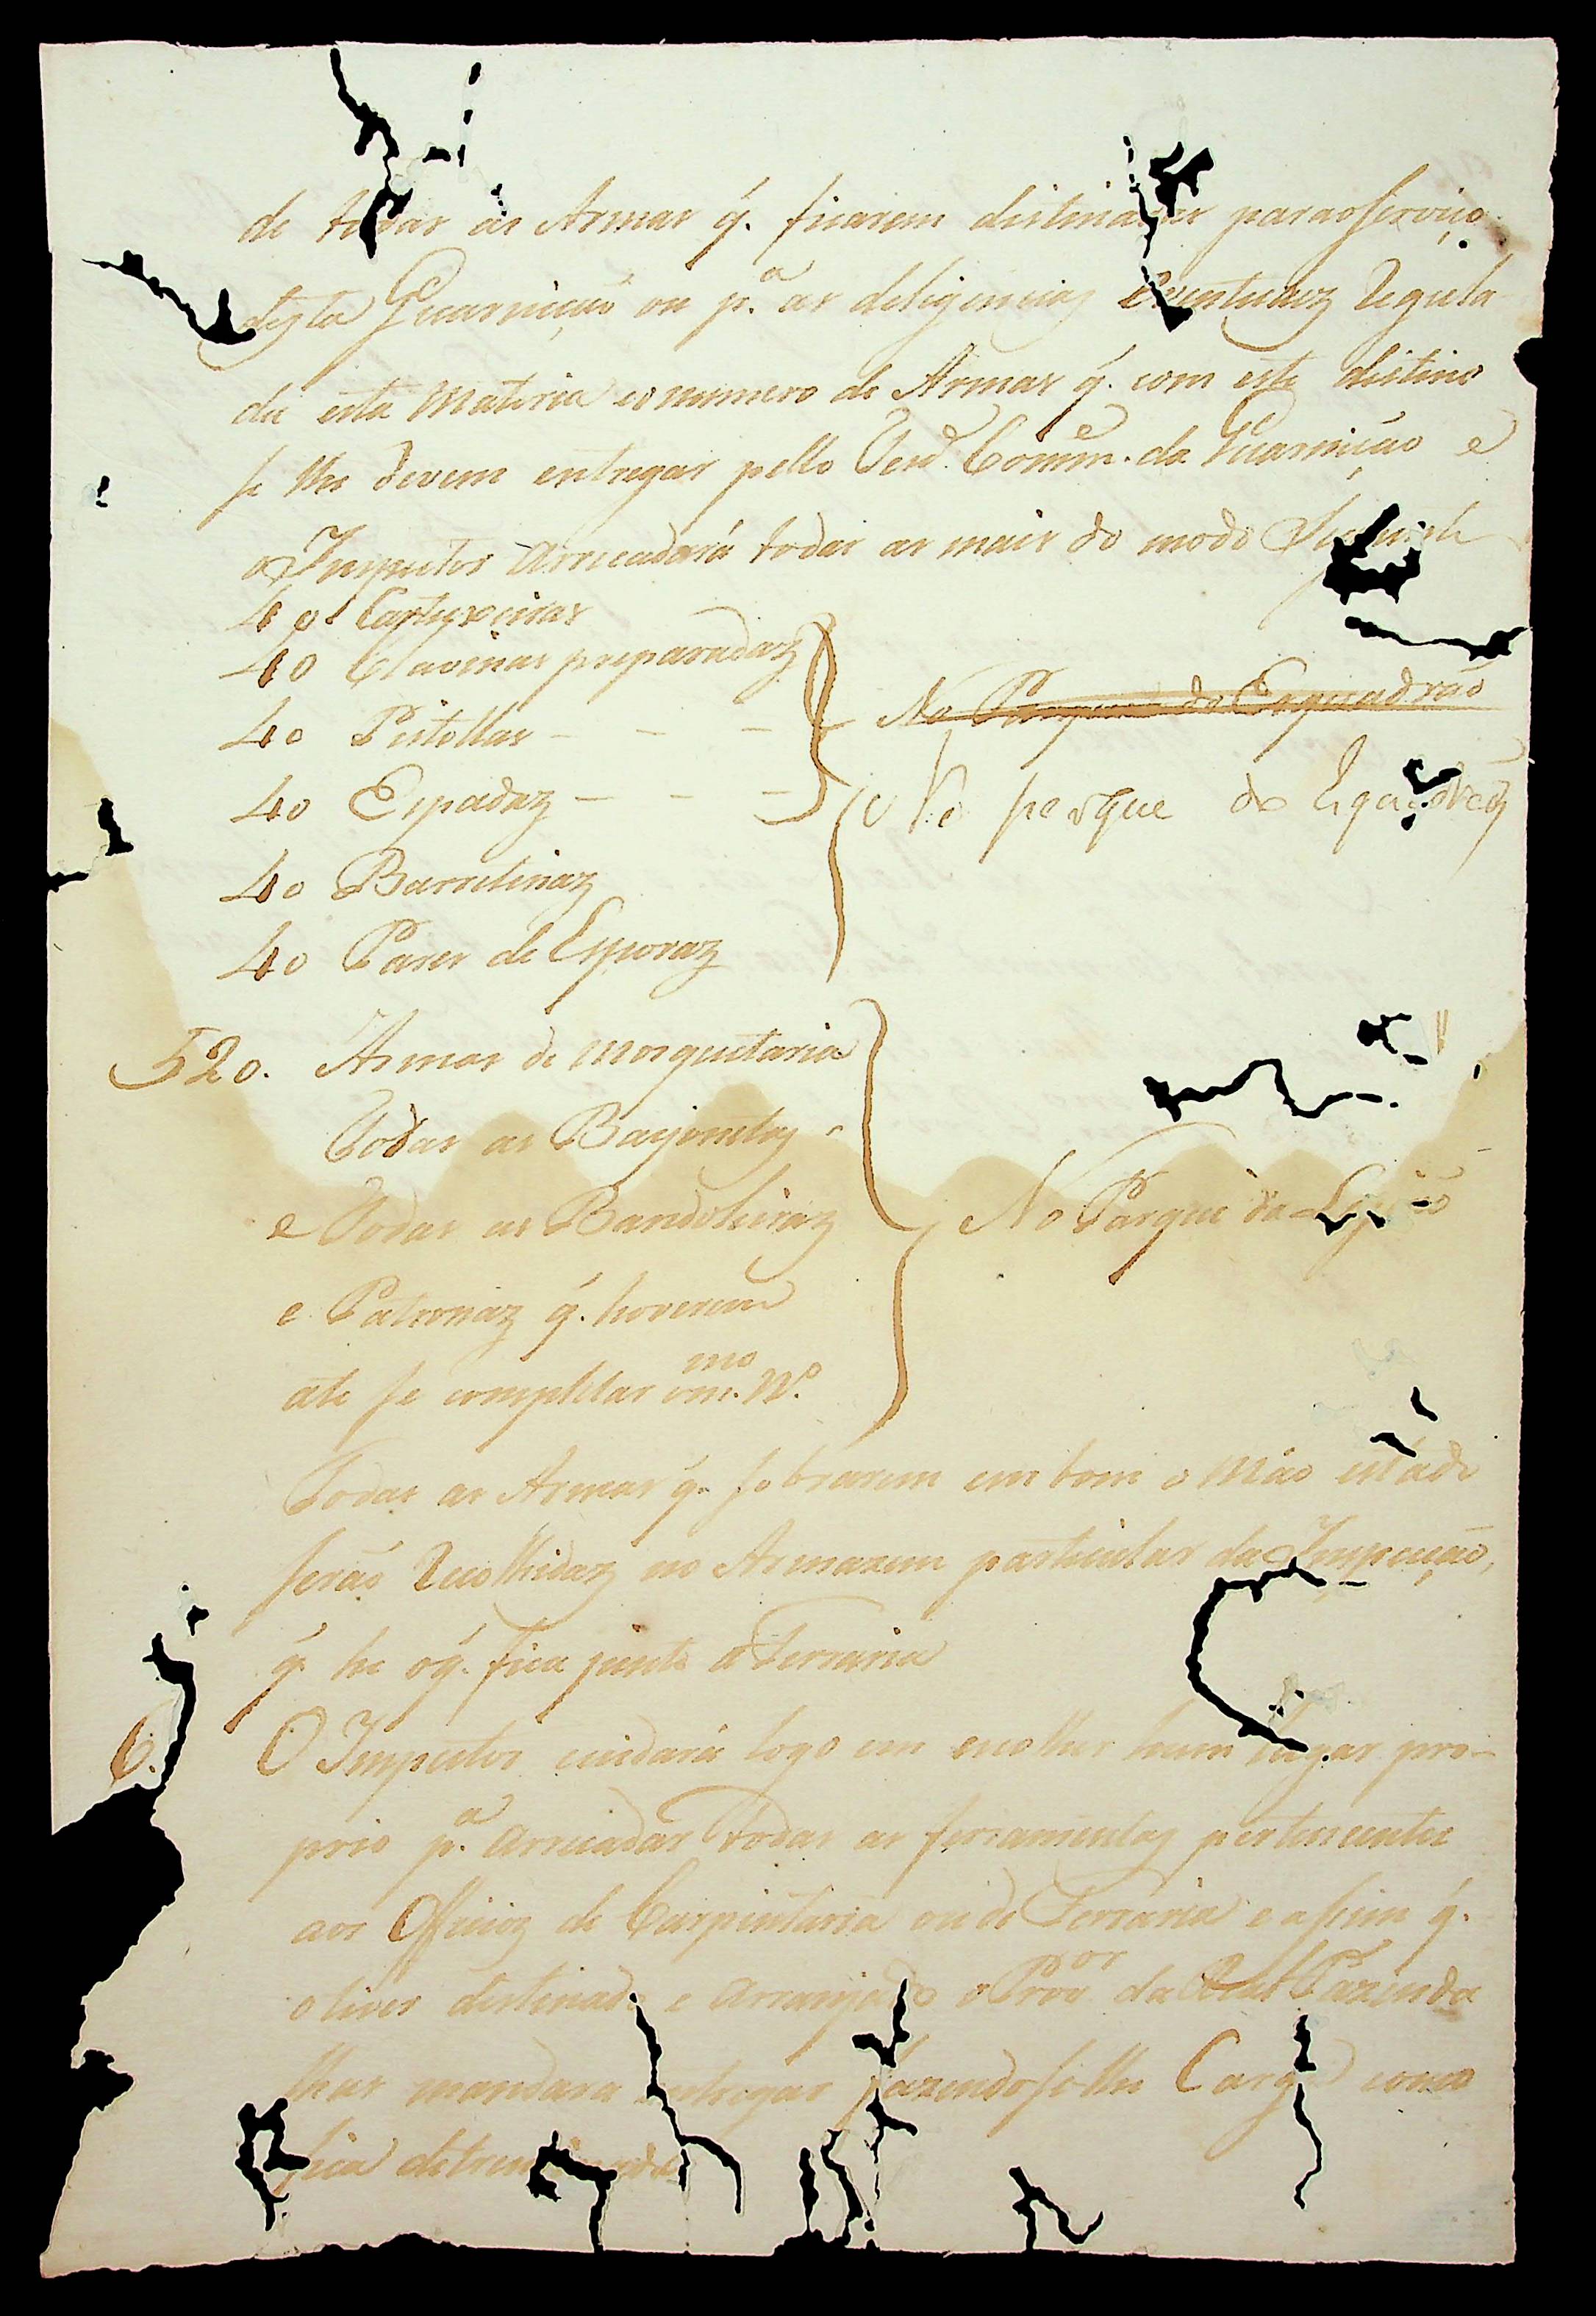 de todas as Armas q̃. ficarem destinadas para o serviço
desta Guarnição ou p.ª as deligencias eventuaez Regula
da esta Materia e o numero de Armas q̃. com este destino
se lhe devem entregar pello Ten.ᵉ Comm.ᵉ da Guarnição e
o Inspector arrecadará todas as mais do modo Seguinte
40 Cartuxeiras
40 Clavinas preparadaz
40 Pistollas - - -
No Parque do Esquadrão
40 Espadaz - - -
No parque do Esquadrão
40 Barretinaz
40 Pares de Esporaz
520. Armas de Mosquetaria
Todas as Bayonetaz
e Todas as Bandoleiraz
No Parque da Legião
e Patronaz q̃. houverem
ate se completar o m.ᵐᵒ N.º
Todas as Armas q̃. sobrarem em bom o Máo estado
serão Recolhidaz no Armazem particular da Inspecção,
q̃. he o q̃. fica junto a Ferraria
6. O Inspector cuidará logo em escolher hum lugar pro-
prio p.ª arrecadar todas as ferramentaz pertencentes
aos Officioz de Carpintaria ou de Ferraria e assim q̃.
o tiver destinado e arranjado o Prov.ᵒʳ da Real Fazenda
lhas mandara entregar fazendoselhe Carga como
fica determinado